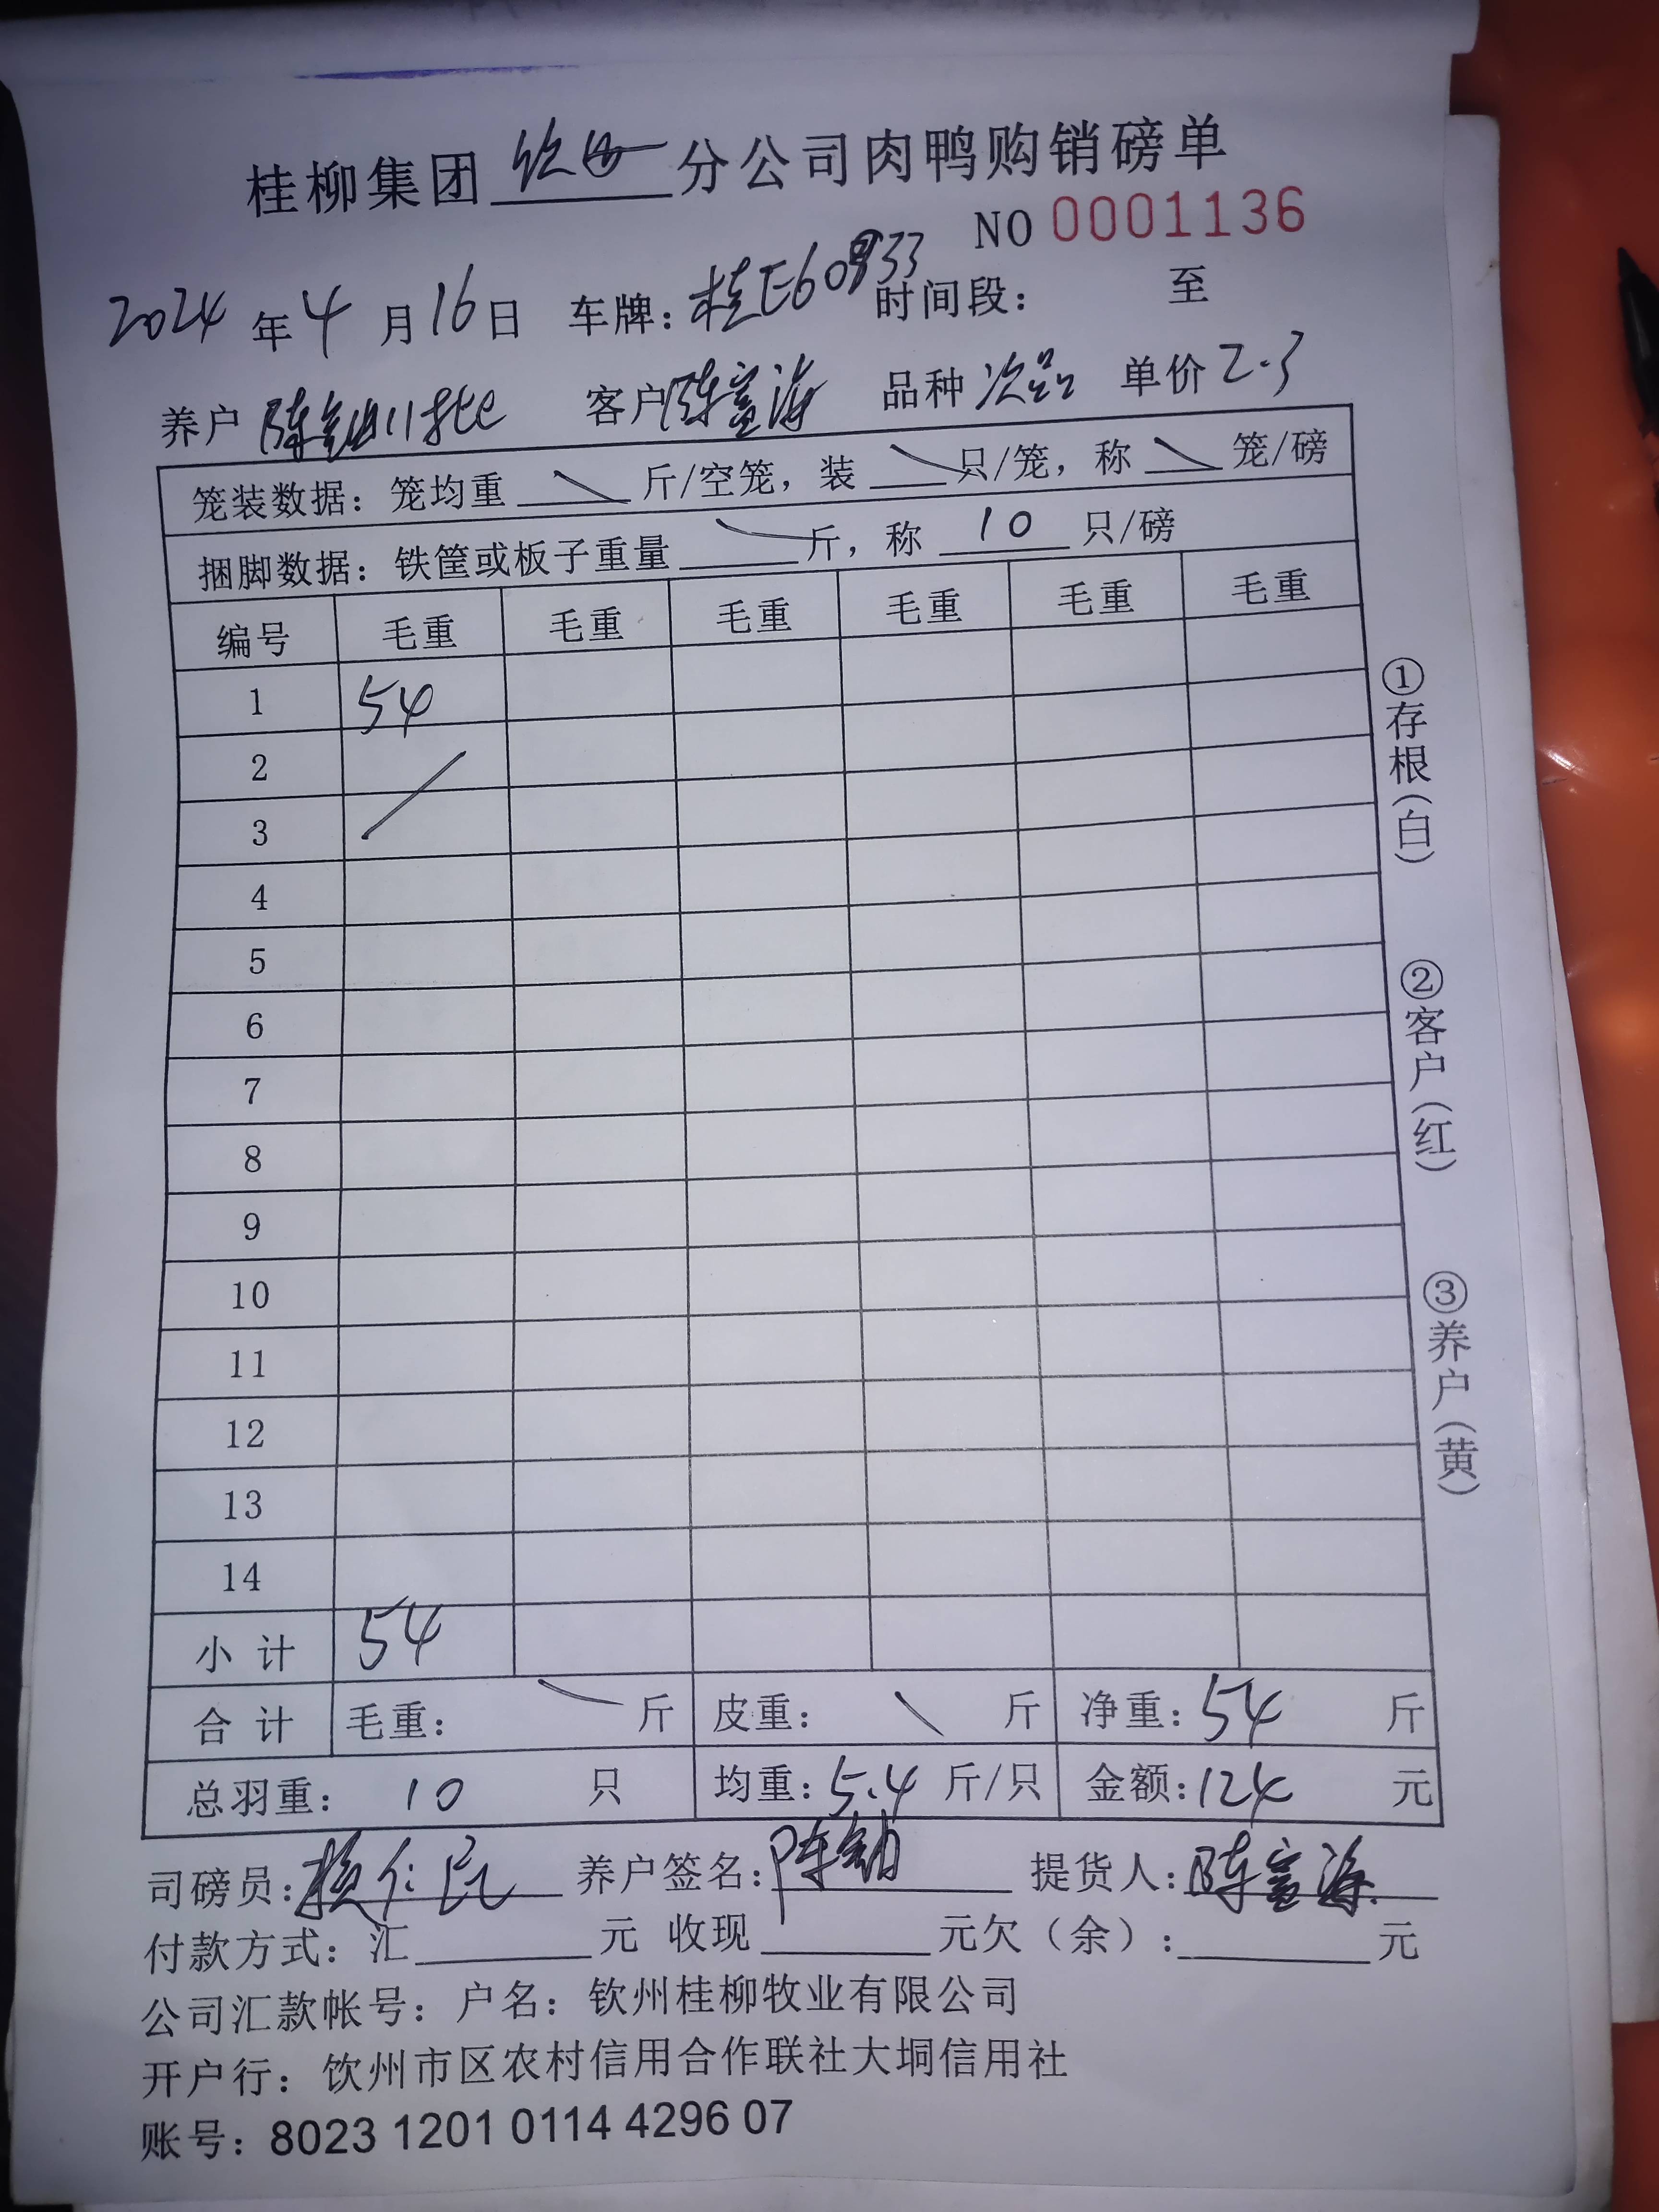 桂柳集团 钦州 分公司肉鸭购销磅单
NO 0001136
2024 年 4 月 16 日 车牌：桂E60933 时间段： 至
养户 陈 批 客户 陈富海 品种 次品 单价 2.3
笼装数据：笼均重 斤/空笼，装 只/笼，称 笼/磅
捆脚数据：铁筐或板子重量 斤，称 10 只/磅
编号 毛重 毛重 毛重 毛重 毛重 毛重
1 54
2
3
4
5
6
7
8
9
10
11
12
13
14
小计 54
合计 毛重： 斤 皮重： 斤 净重：54 斤
总羽重： 10 只 均重：5.4 斤/只 金额：124 元
司磅员： 仁民 养户签名：陈 提货人：陈富海
付款方式：汇 元 收现 元欠（余）： 元
公司汇款帐号：户名：钦州桂柳牧业有限公司
开户行：钦州市区农村信用合作联社大垌信用社
账号：8023 1201 0114 4296 07
①存根（白）
②客户（红）
③养户（黄）